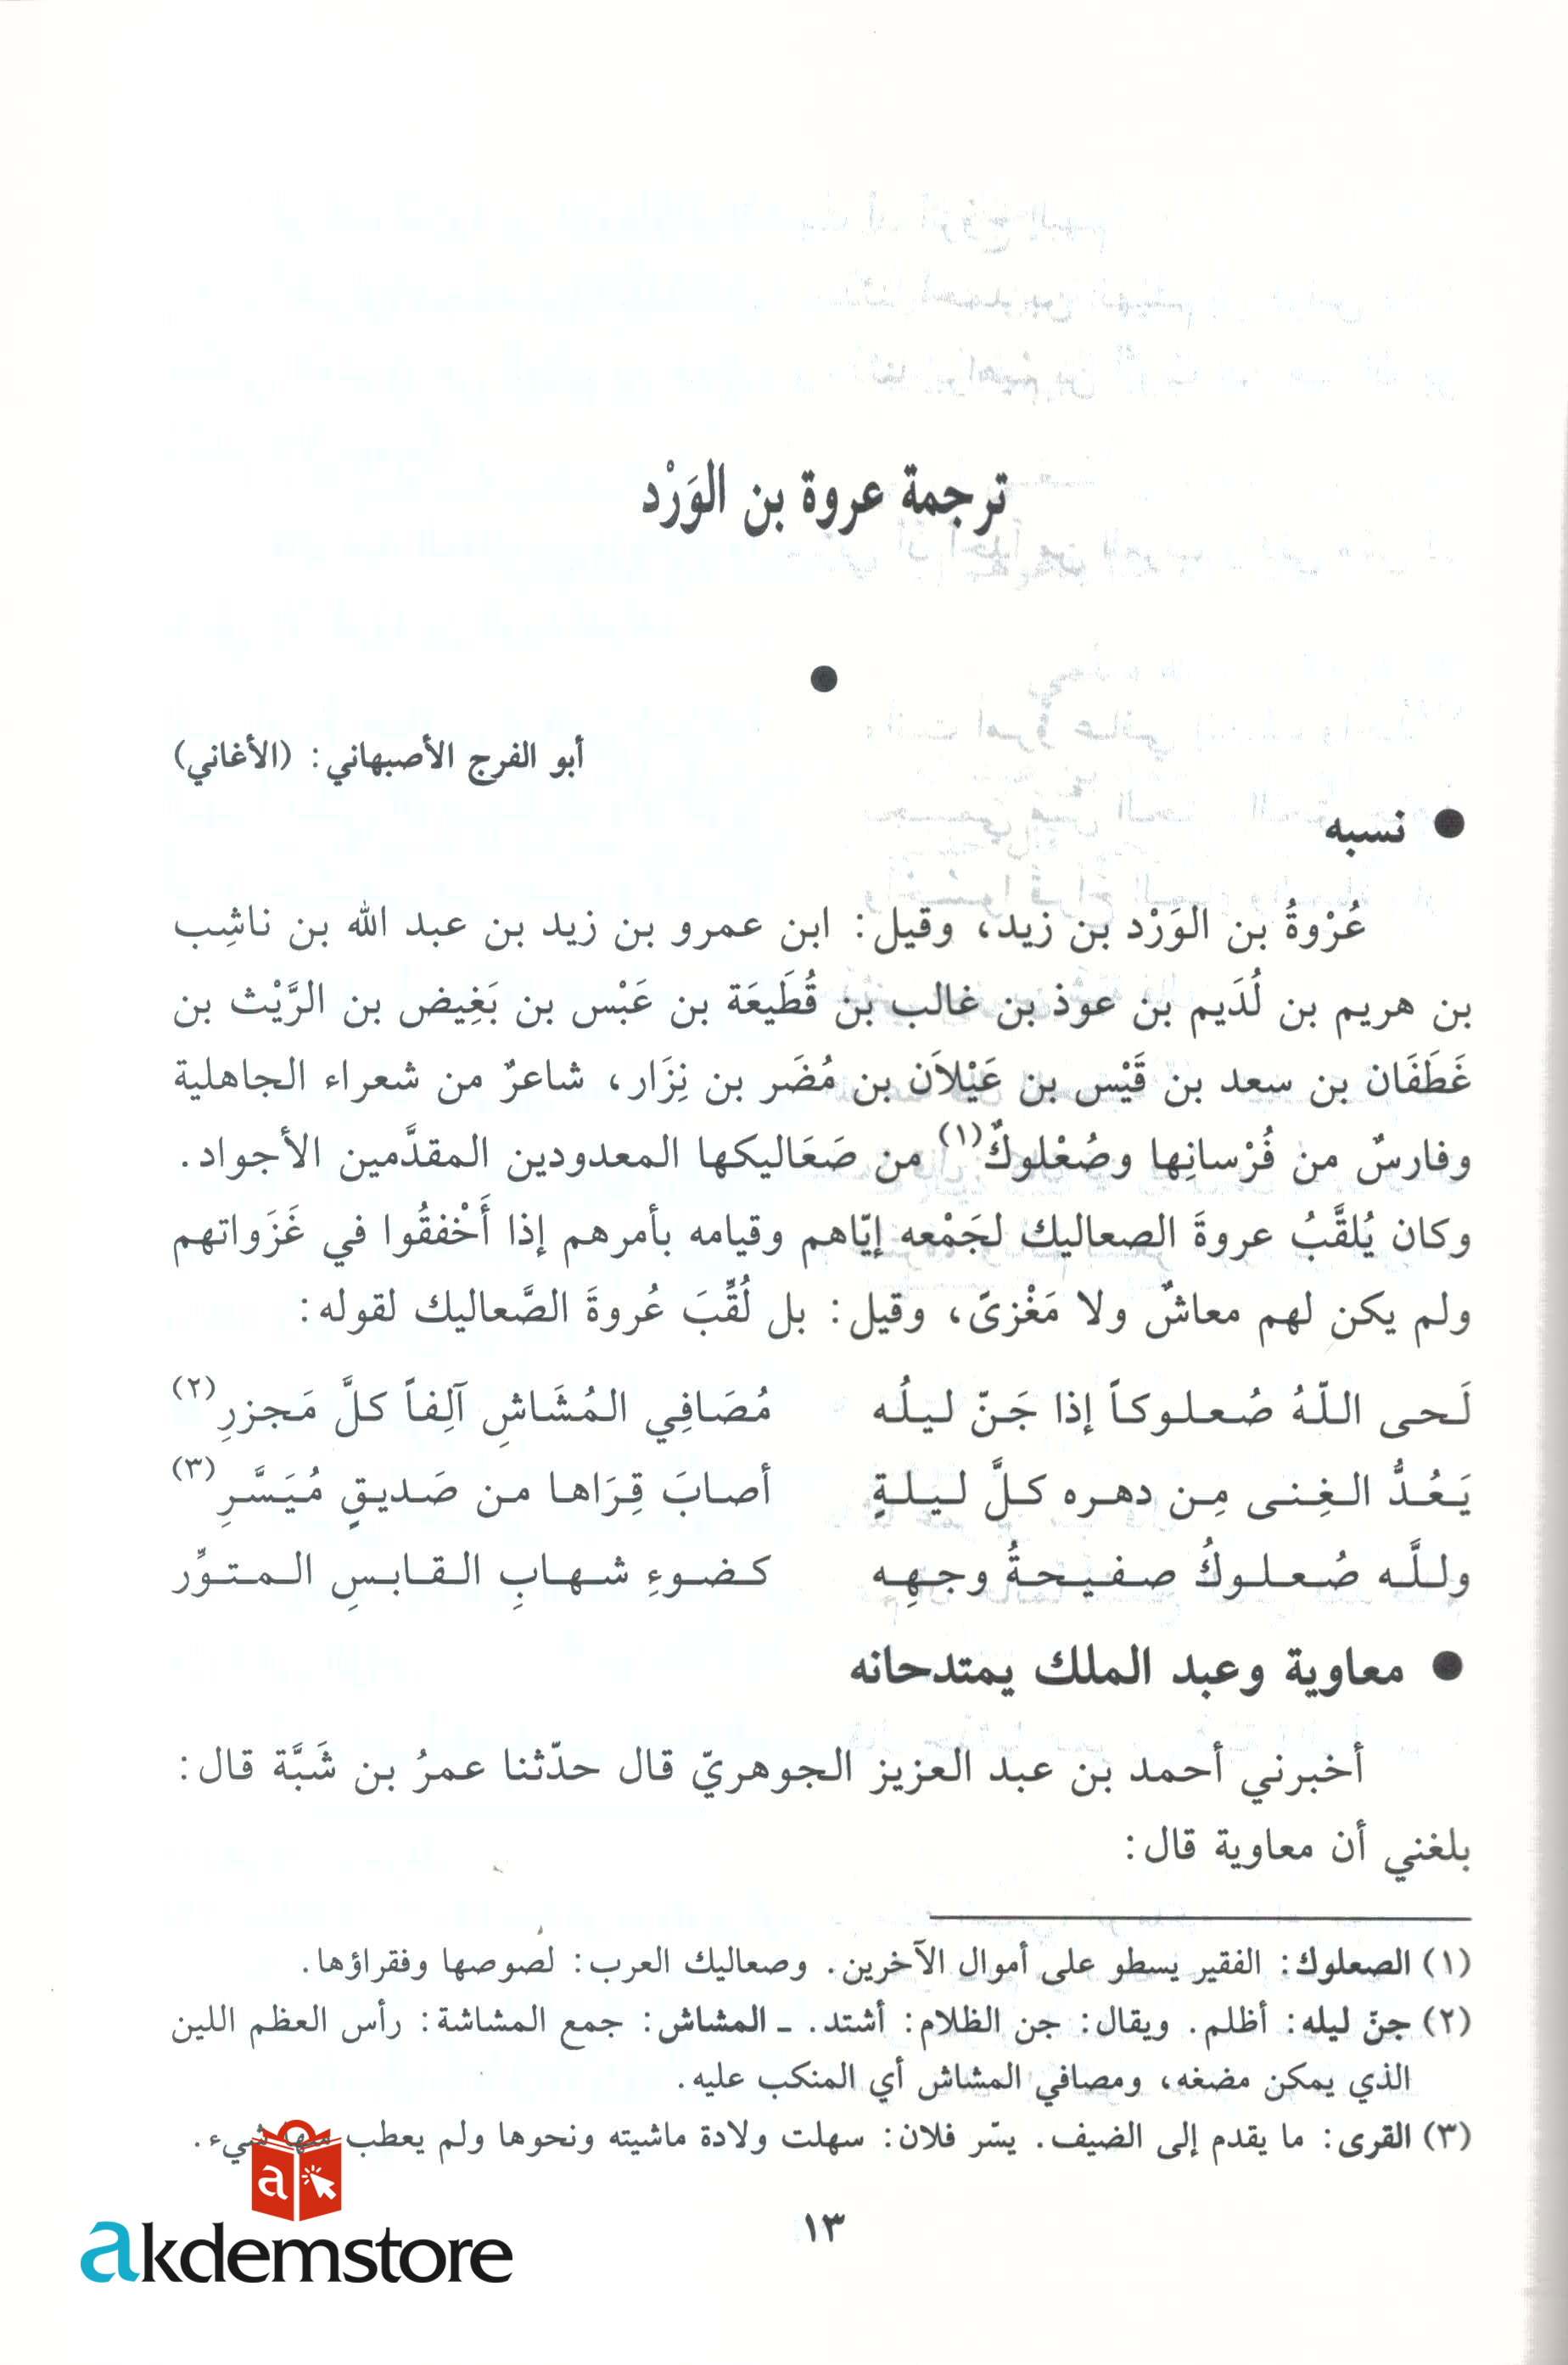 ترجمة عروة بن الوَرْد
أبو الفرج الأصبهاني: (الأغاني)
● نسبه
عُرْوةُ بن الوَرْد بن زيد، وقيل: ابن عمرو بن زيد بن عبد الله بن ناشِب
بن هريم بن لُدَيم بن عوذ بن غالب بن قُطَيعَة بن عَبْس بن بَغِيض بن الرَّيْث بن
غَطَفَان بن سعد بن قَيْس بن عَيْلاَن بن مُضَر بن نِزَار، شاعرٌ من شعراء الجاهلية
وفارسٌ من فُرْسانِها وصُعْلوكٌ(١) من صَعَاليكها المعدودين المقدَّمين الأجواد.
وكان يُلقَّبُ عروةَ الصعاليك لجَمْعه إيّاهم وقيامه بأمرهم إذا أَخْفقُوا في غَزَواتهم
ولم يكن لهم معاشٌ ولا مَغْزىً، وقيل: بل لُقِّبَ عُروةَ الصَّعاليك لقوله:
لَحى اللّهُ صُعلوكاً إذا جَنّ ليلُه مُصَافِي المُشَاشِ آلِفاً كلَّ مَجزرِ(٢)
يَعُدُّ الغِنى مِن دهره كلَّ ليلةٍ أصابَ قِرَاها من صَديقٍ مُيَسَّرِ(٣)
وللَّه صُعلوكُ صفيحةُ وجهِه كضوءِ شهابِ القابسِ المتوِّر
● معاوية وعبد الملك يمتدحانه
أخبرني أحمد بن عبد العزيز الجوهريّ قال حدّثنا عمرُ بن شَبَّة قال:
بلغني أن معاوية قال:
(١) الصعلوك: الفقير يسطو على أموال الآخرين. وصعاليك العرب: لصوصها وفقراؤها.
(٢) جنّ ليله: أظلم. ويقال: جن الظلام: أشتد. ـ المشاش: جمع المشاشة: رأس العظم اللين
الذي يمكن مضغه، ومصافي المشاش أي المنكب عليه.
(٣) القرى: ما يقدم إلى الضيف. يسّر فلان: سهلت ولادة ماشيته ونحوها ولم يعطب منها شيء.
١٣
a
akdemstore